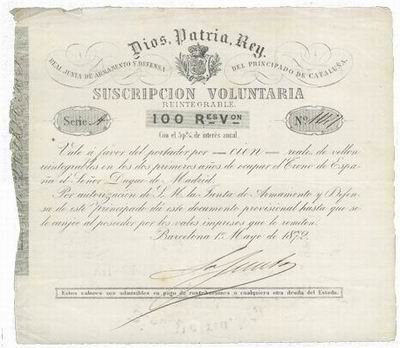 Dios, Patria, Rey.
REAL JUNTA DE ARMAMENTO Y DEFENSA DEL PRINCIPADO DE CATALUÑA.
SUSCRIPCION VOLUNTARIA
REINTEGRABLE.
Serie A 100 Rˢ Vᵒⁿ Nº
Con el 5p% de interés anual.
Vale á favor del portador por — cien — reales de vellon
reintegrables en los dos primeros años de ocupar el Trono de Espa-
ña el Señor Duque de Madrid.
Por autorizacion de S. M. la Junta de Armamento y Defen-
sa de este Principado dá este documento provisional hasta que se
le canjie al poseedor por los vales impresos que le remiten.
Barcelona 1º Mayo de 1872.
La Junta
Estos valores son admisibles en pago de contribuciones o cualquiera otra deuda del Estado.